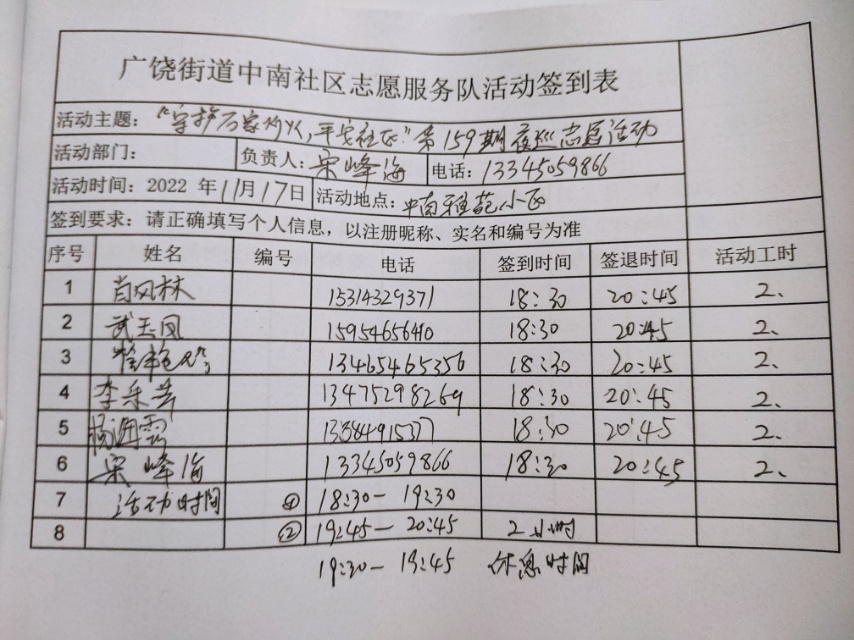 广饶街道中南社区志愿服务队活动签到表
活动主题："守护万家灯火,平安社区"第159期夜巡志愿活动
活动部门： 负责人：宋峰海 电话：13345059866
活动时间：2022 年11月17日 活动地点：中南雅苑小区
签到要求：请正确填写个人信息，以注册昵称、实名和编号为准
序号 姓名 编号 电话 签到时间 签退时间 活动工时
1 肖风林 15314329371 18:30 20:45 2、
2 武玉凤 15954656410 18:30 20:45 2、
3 13465465356 18:30 20:45 2、
4 李采芳 13475298269 18:30 20:45 2、
5 杨海霞 18:30 20:45 2、
6 宋峰海 13345059866 18:30 20:45 2、
7 活动时间 ① 18:30- 19:30
8 ② 19:45- 20:45 2小时
19:30- 19:45 休息时间